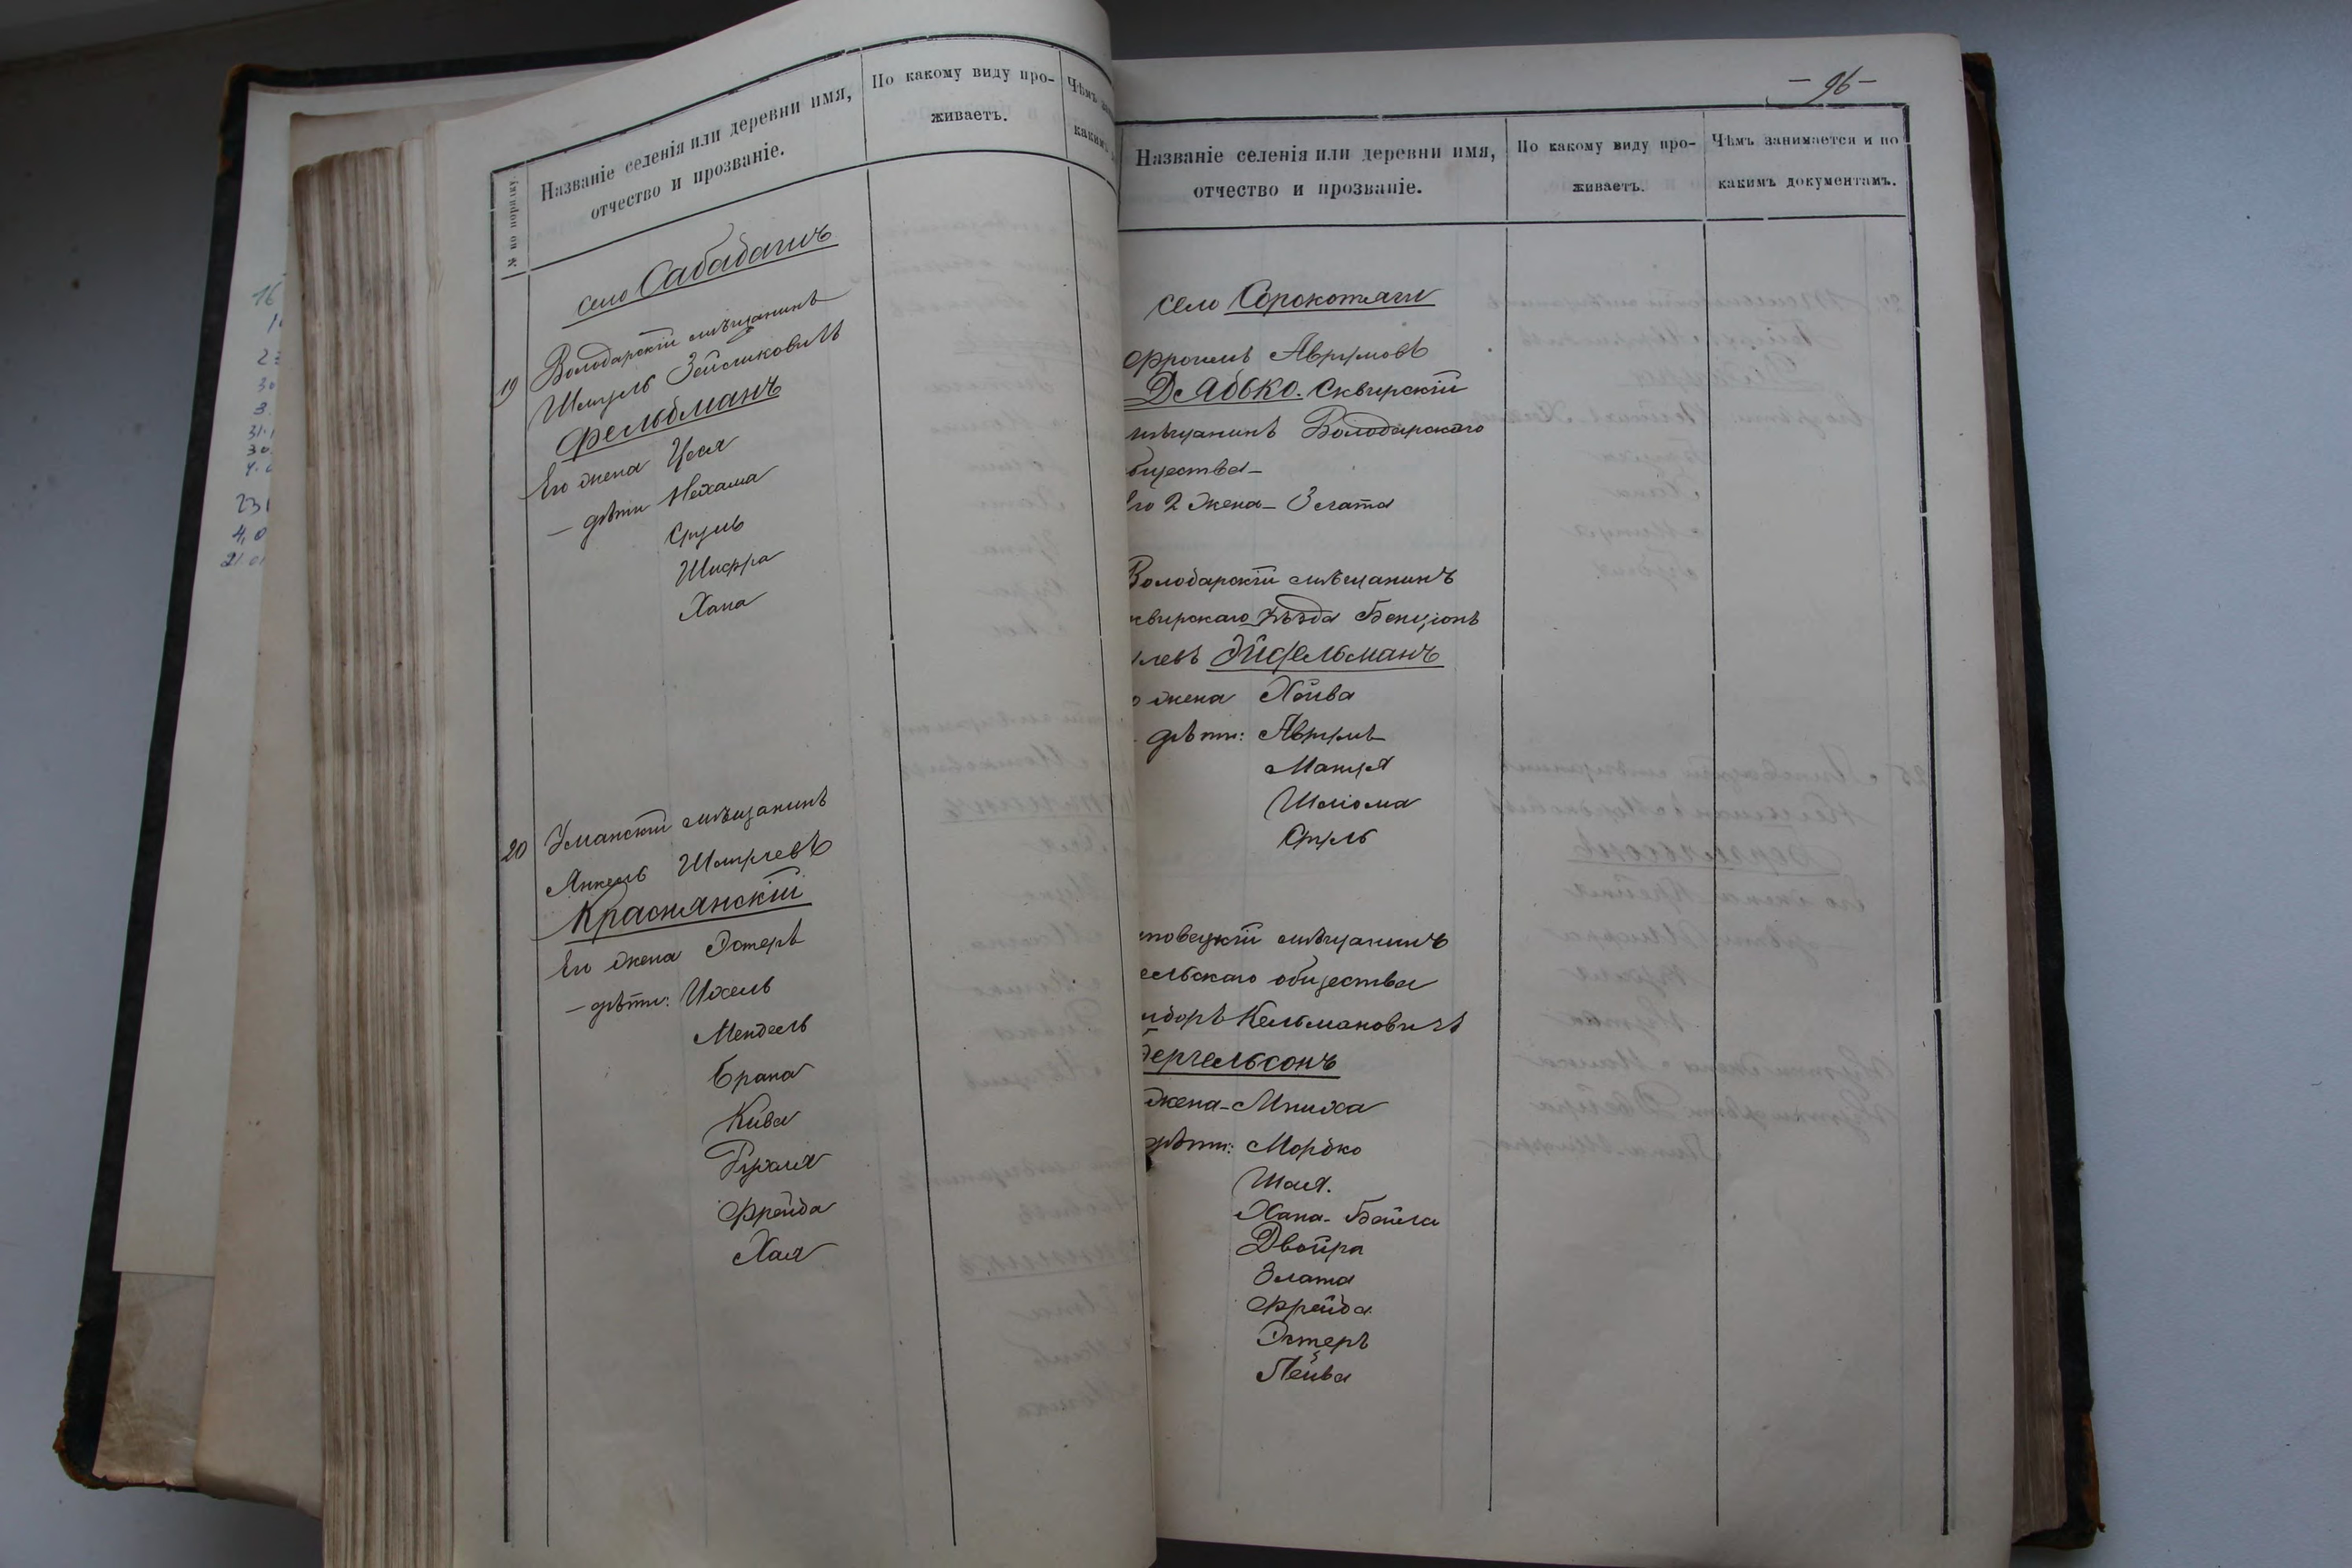 № по порядку.
Названіе селенія или деревни имя,
отчество и прозваніе.
По какому виду про-
живаетъ.
Чѣмъ
каким
село Сабадашъ
19
Володарскій мѣщанинъ
Шмуль Зейликовичъ
Фельдманъ
Его жена Цося
— дѣти Нехама
Сруль
Шифра
Хана
20
Уманскій мѣщанинъ
Янкель Шмулевъ
Краснянскій
Его жена Эстеръ
— дѣти: Ихель
Мендель
Брана
Кива
Рухля
Фрейда
Хая
— 96 —
Названіе селенія или деревни имя,
отчество и прозваніе.
По какому виду про-
живаетъ.
Чѣмъ занимается и по
какимъ документамъ.
село Сорокотяги
Фроимъ Аврумовъ
Дзябко. Сквирскій
мѣщанинъ Володарскаго
бщества—
го 2 жена— Злата
Володарскій мѣщанинъ
квирскаго уѣзда Бенціонъ
левъ Эйдельманъ
о жена Хойва
дѣти: Аврумъ
Манця
Шліома
Сруль
новецкій мѣщанинъ
ельскаго общества
Кельмановичъ
Бергельсонъ
жена— Мниха
дѣти: Мордко
Шая.
Хана-Бейла
Двойра
Злата
Фрейда
Эстеръ
Лейва
16
23
30
3.
31.1
30.
4.0
231
4,0
21.01